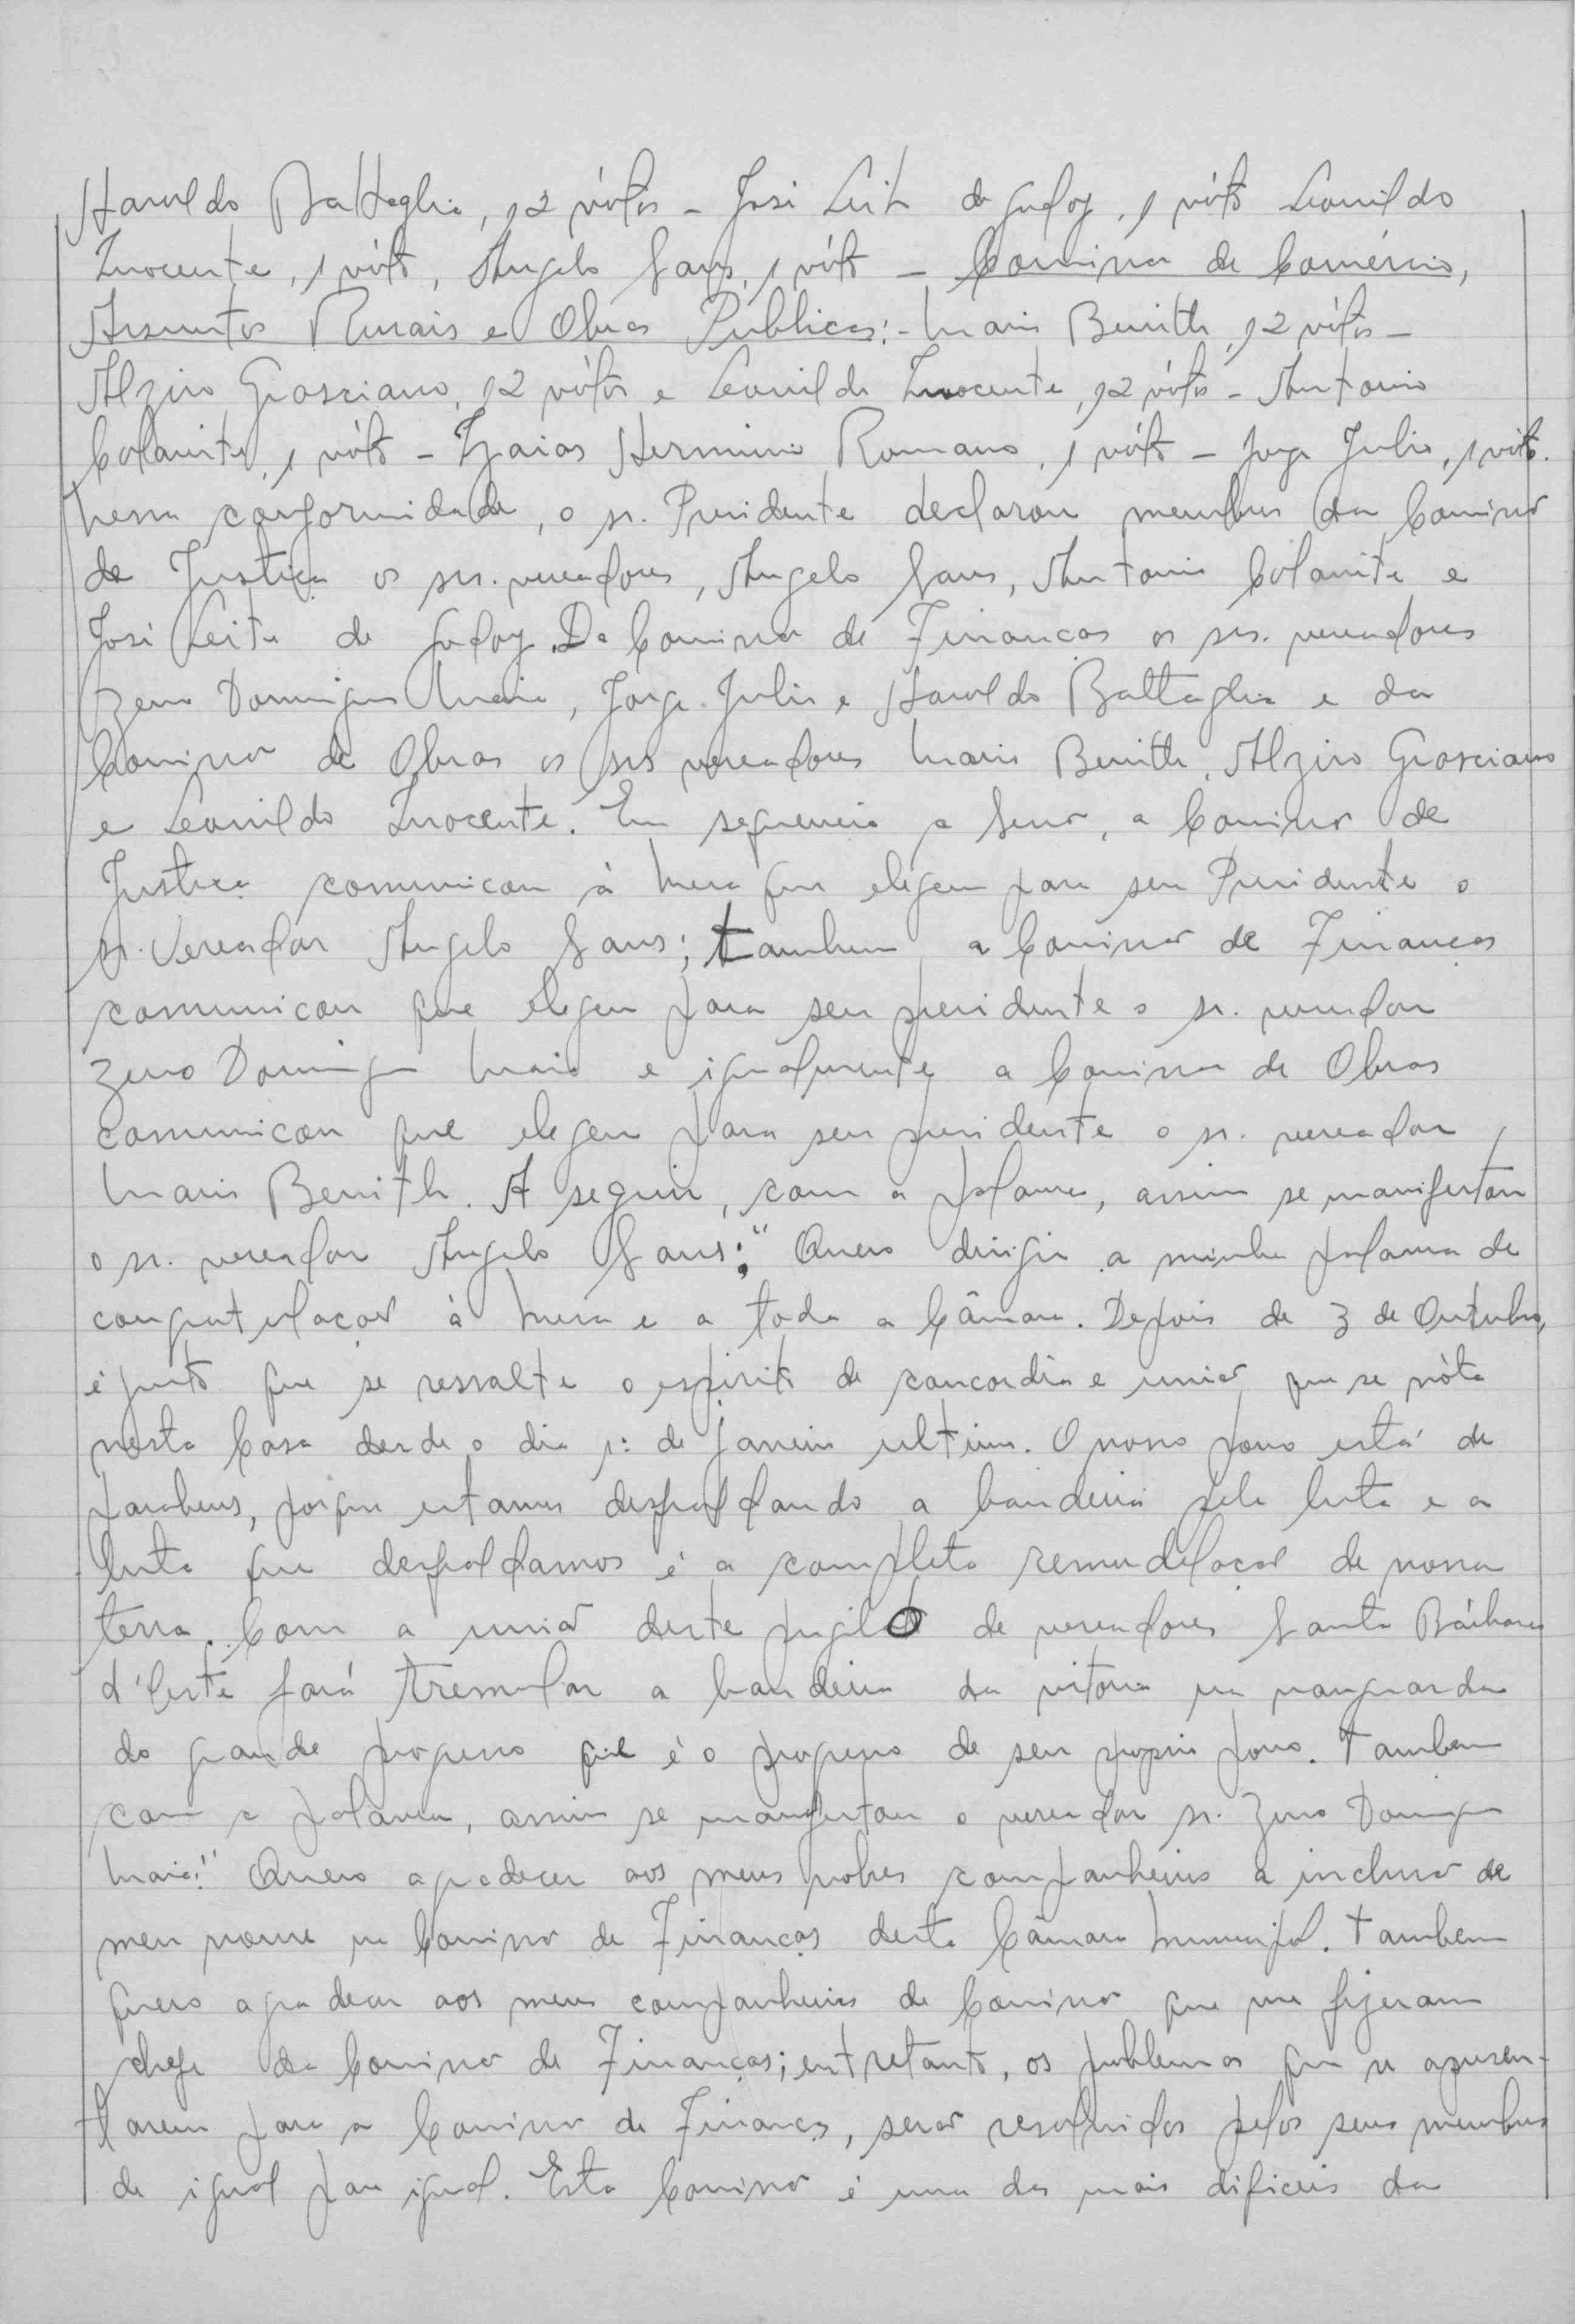 Haroldo Battaglia, 12 vótos - José Leite de Godoy, 1 vóto Leonildo
Inocente, 1 vóto, Angelo Sans, 1 vóto - Comissão de Comércio,
Assuntos Rurais e Obras Publicas:- Mario Benith, 12 vótos -
Alziro Grasciano, 12 vótos e Leonildo Inocente, 12 vótos - Antonio
Colanite, 1 vóto - Izaias Herminio Romano, 1 vóto - Jorge Julio, 1 vóto.
Nessa conformidade, o sr. Presidente declarou membros da Comissão
de Justiça os srs. vereadores, Angelo Sans, Antonio Colanite e
José Leite de Godoy. Da Comissão de Finanças os srs. vereadores
Zeno Domingues Maia, Jorge Julio e Haroldo Battaglia e da
Comissão de Obras os srs vereadores Mario Benith, Alziro Grasciano
e Leonildo Inocente. Em sequencia a sessão, a Comissão de
Justiça comunicou à Mesa que elegeu para seu Presidente o
sr. Vereador Angelo Sans; tambem a Comissão de Finanças
comunicou que elegeu para seu presidente o sr. vereador
Zeno Domingues Maia e igualmente a Comissão de Obras
comunicou que elegeu para seu presidente o sr. vereador
Mario Benith. A seguir, com a palavra, assim se manifestou
o sr. vereador Angelo Sans: "Quero dirigir a minha palavra de
congratulação à Mesa e a toda a Câmara. Depois de 3 de Outubro,
é justo que se ressalte o espirito de concordia e união que se nóta
nesta Casa desde o dia 1º de janeiro ultimo. O nosso povo está de
parabens, porque estamos desfraldando a bandeira pela luta e a
luta que desfraldamos é a completa remodelação de nossa
terra. Com a união deste pugilo de vereadores Santa Bárbara
d'Oeste fará tremular a bandeira da vitoria na vanguarda
do grande progresso que é o progresso de seu proprio povo. Tambem
com a palavra, assim se manifestou o vereador sr. Zeno Domingues
Maia: "Quero agradecer aos meus nobres companheiros a inclusão de
meu nome na Comissão de Finanças desta Câmara Municipal. Tambem
quero agradecer aos meus companheiros de Comissão que me fizeram
chefe da Comissão de Finanças; entretanto, os problemas que se apresen-
tarem para a Comissão de Finanças, serão resolvidos pelos seus membros
de igual para igual. Esta Comissão é uma das mais dificeis da